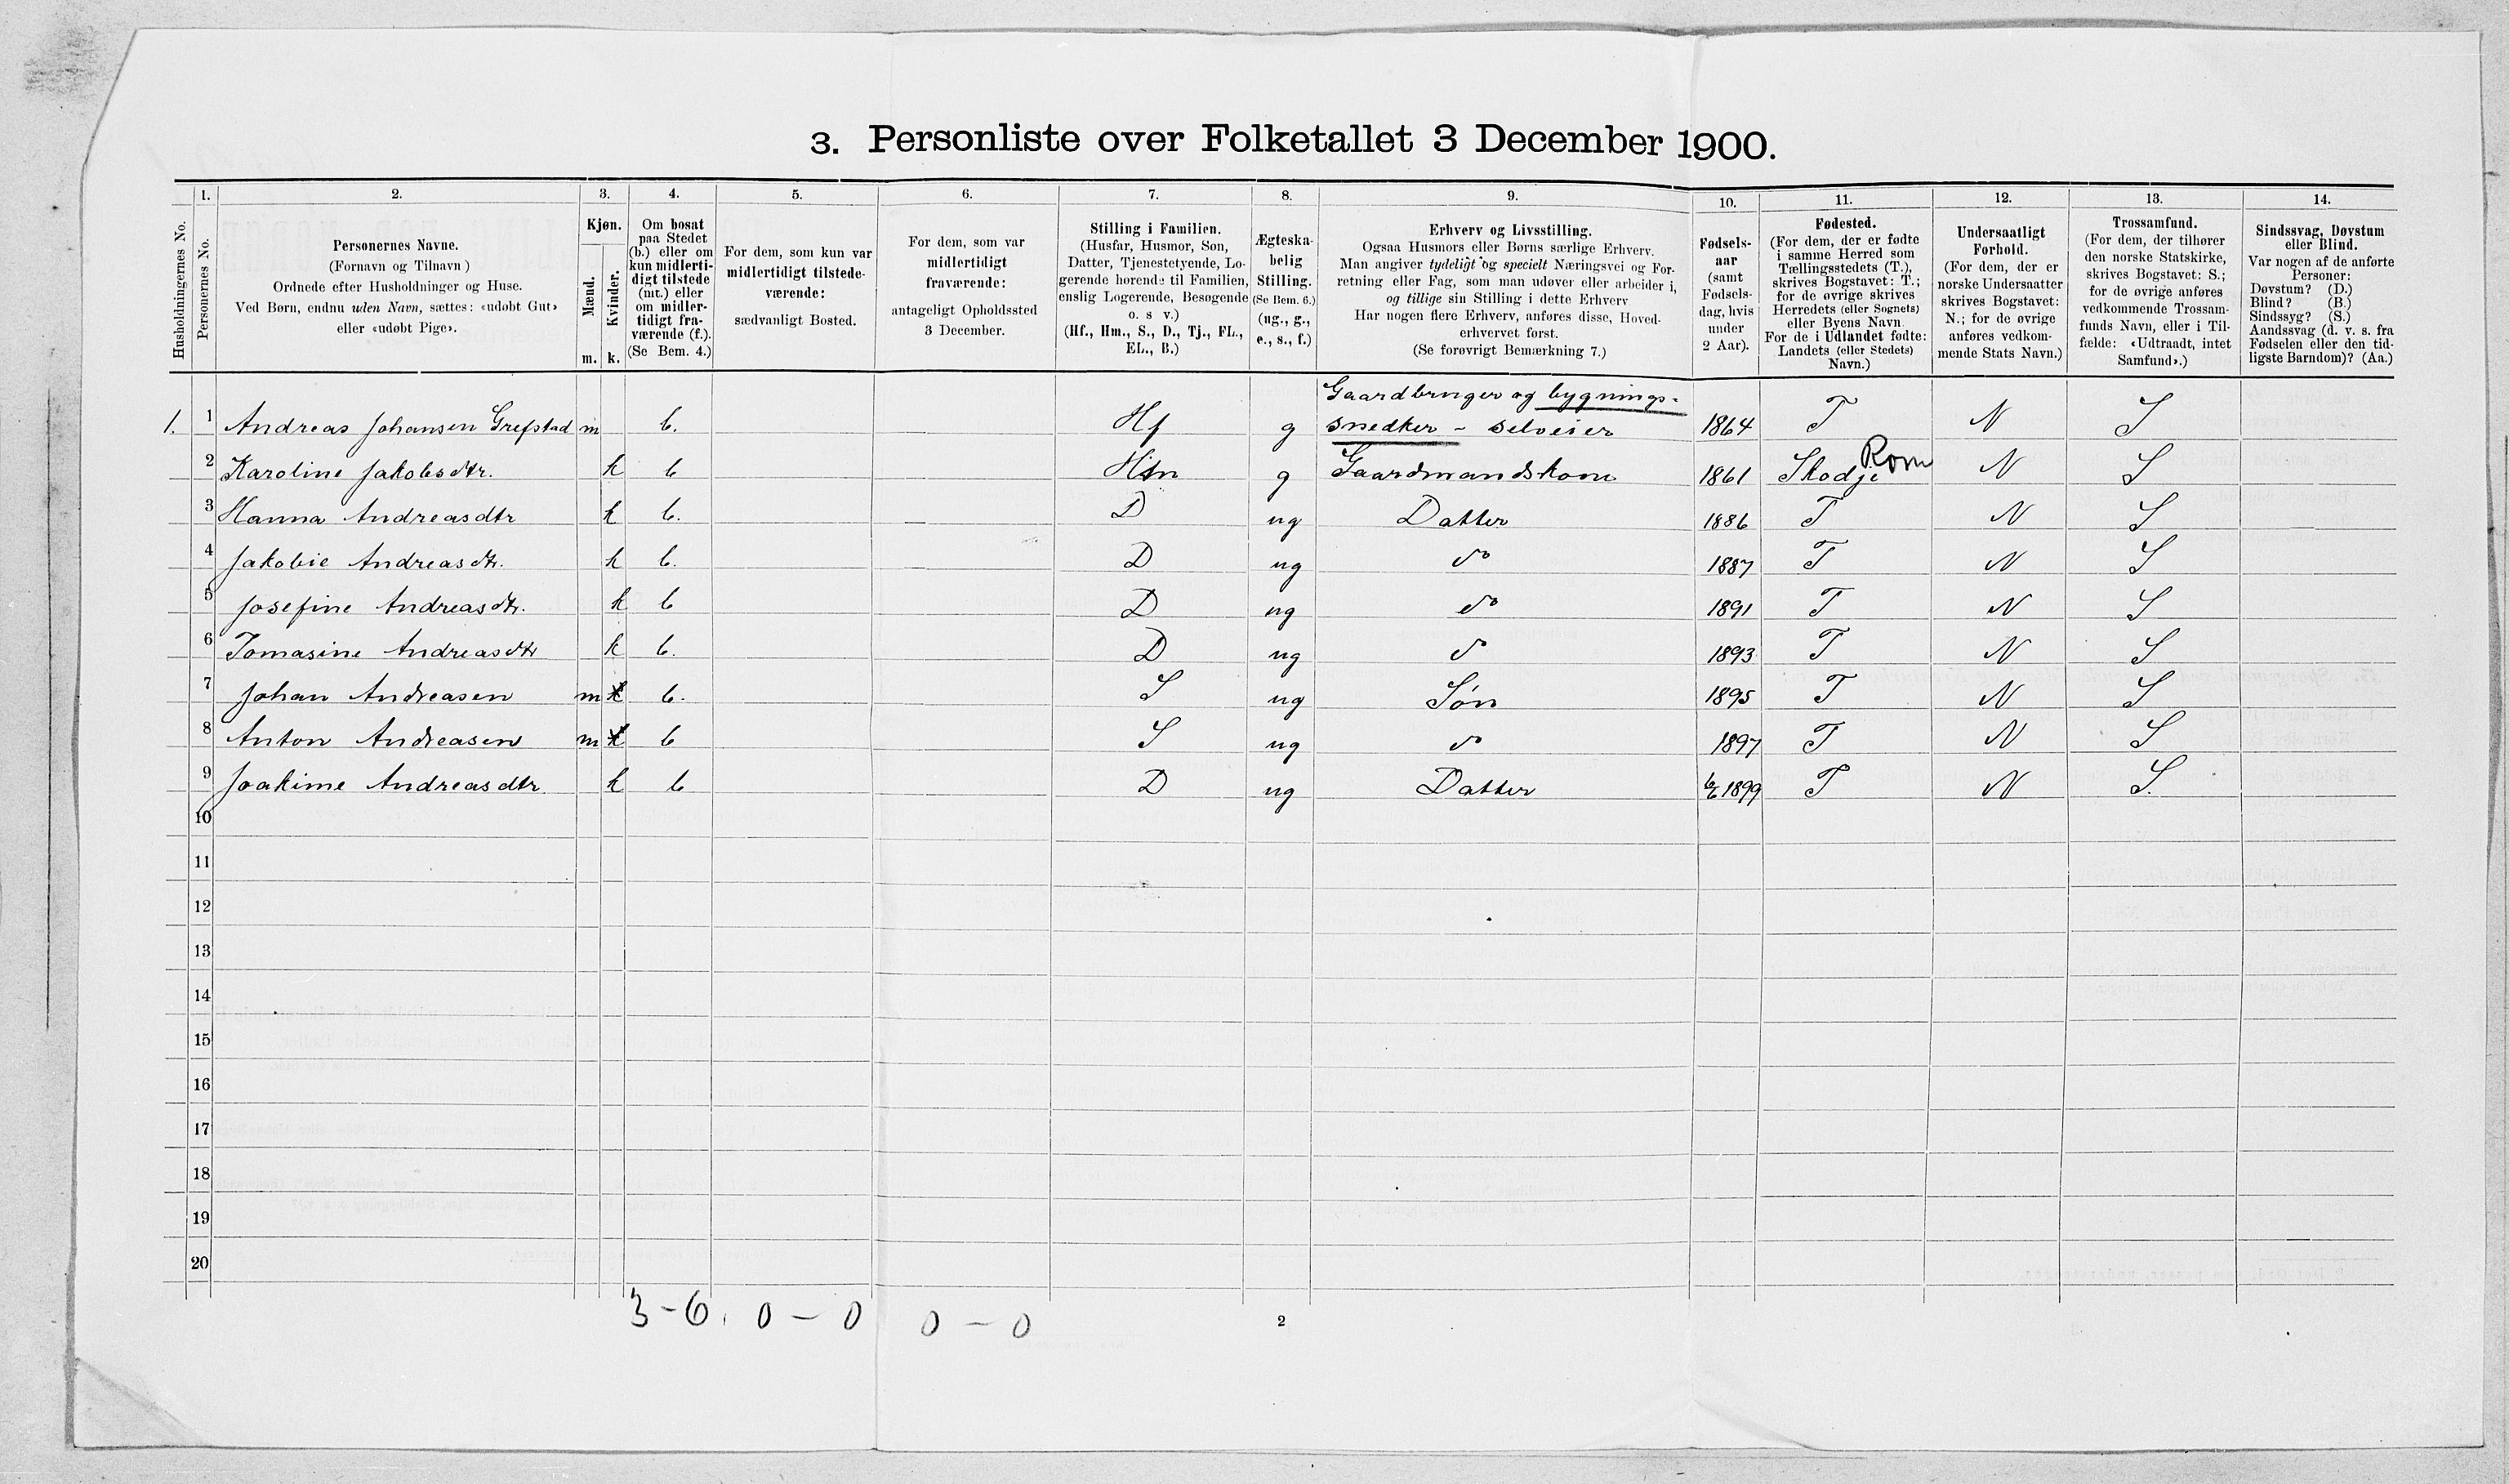 3. Personliste over Folketallet 3 December 1900.
1. 2. 3. 4. 5. 6. 7. 8. 9. 10. 11. 12. 13. 14.
Husholdningernes No.
Personernes No.
Personernes Navne.
(Fornavn og Tilnavn)
Ordnede efter Husholdninger og Huse.
Ved Børn, endnu uden Navn, sættes: «udøbt Gut»
eller «udøbt Pige».
Kjøn.
Mænd.
Kvinder.
m. k.
Om bosat
paa Stedet
(b.) eller om
kun midlerti-
digt tilstede
(mt.) eller
om midler-
tidigt fra-
værende (f.).
(Se Bem. 4.)
For dem, som kun var
midlertidigt tilstede-
værende:
sædvanligt Bosted.
For dem, som var
midlertidigt
fraværende:
antageligt Opholdssted
3 December.
Stilling i Familien.
(Husfar, Husmor, Søn,
Datter, Tjenestetyende, Lo-
gerende hørende til Familien,
enslig Logerende, Besøgende
o. s v.)
(Hf., Hm., S., D., Tj., FL.,
EL., B.)
Ægteska-
belig
Stilling.
(Se Bem. 6.)
(ug., g.,
e., s., f.)
Erhverv og Livsstilling.
Ogsaa Husmors eller Børns særlige Erhverv.
Man angiver tydeligt og specielt Næringsvei og For-
retning eller Fag, som man udøver eller arbeider i,
og tillige sin Stilling i dette Erhverv
Har nogen flere Erhverv, anføres disse, Hoved-
erhvervet først.
(Se forøvrigt Bemærkning 7.)
Fødsels-
aar
(samt
Fødsels-
dag, hvis
under
2 Aar).
Fødested.
(For dem, der er fødte
i samme Herred som
Tællingsstedets (T.),
skrives Bogstavet: T.;
for de øvrige skrives
Herredets (eller Sognets)
eller Byens Navn
For de i Udlandet fødte:
Landets (eller Stedets)
Navn.)
Undersaatligt
Forhold.
(For dem, der er
norske Undersaatter
skrives Bogstavet:
N.; for de øvrige
anføres vedkom-
mende Stats Navn.)
Trossamfund.
(For dem, der tilhører
den norske Statskirke,
skrives Bogstavet: S.;
for de øvrige anføres
vedkommende Trossam-
funds Navn, eller i Til-
fælde: «Udtraadt, intet
Samfund».)
Sindssvag, Døvstum
eller Blind.
Var nogen af de anførte
Personer:
Døvstum? (D.)
Blind? (B.)
Sindssyg? (S.)
Aandssvag (d. v. s. fra
Fødselen eller den tid-
ligste Barndom)? (Aa.)
Gaardbruger og bygnings-
1. 1 Andreas Johansen Grefstad m b. Hf g snedker - selveier 1864 T N S
2 Karoline Jakobsdtr. k b Hm g Gaardmandskone 1861 Skodje Rom N S
3 Hanna Andreasdtr k b. — D ug Datter 1886 T N S
4 Jakobie Andreasdtr. k b. D ug do 1887 T N S
5 Josefine Andreasdtr. k b D ug do 1891 T N S
6 Tomasine Andreasdtr k b. D ug do 1893 T N S
7 Johan Andreasen m k b. S ug Søn 1895 T N S
8 Anton Andreasen m k b S ug do 1897 T N S
9 Joakime Andreasdtr k b D ug Datter 1899 T N S.
10
11
12
13
14
15
16
17
18
19
20
3 - 6. 0 - 0 0 - 0
2